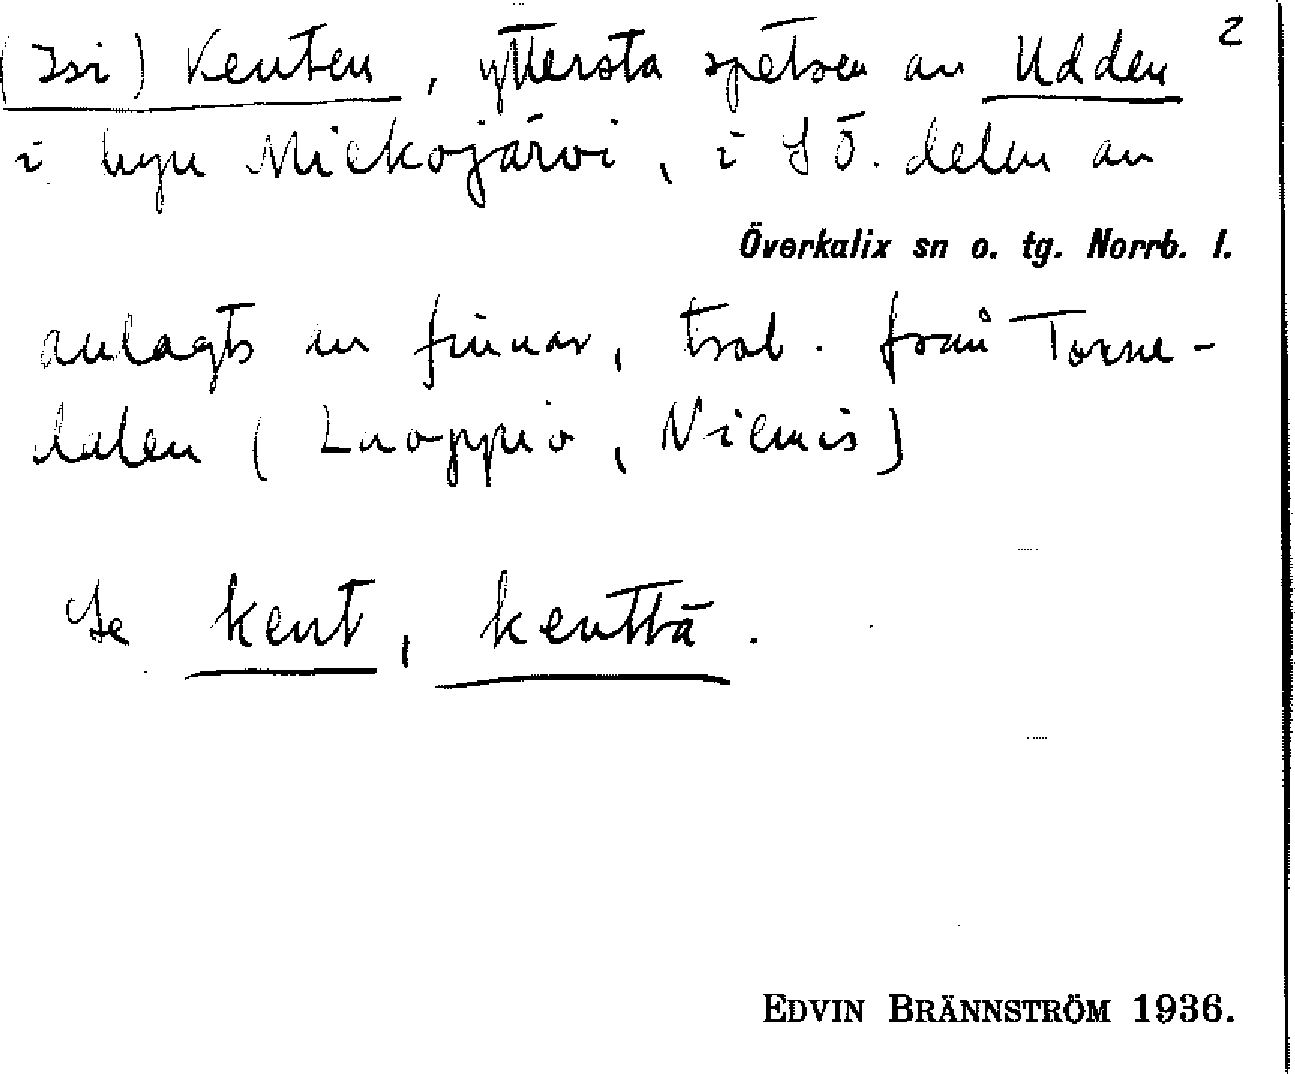 (Isi) Kenten, yttersta spetsen av Udden 2
i byn Mickojärvi, i SÖ. delen av
Överkalix sn o. tg. Norrb. l.
anlagts av finnar, trol. från Torne-
dalen (Luoppio, Niemis)
Se kent, kenttä.
EDVIN BRÄNNSTRÖM 1936.